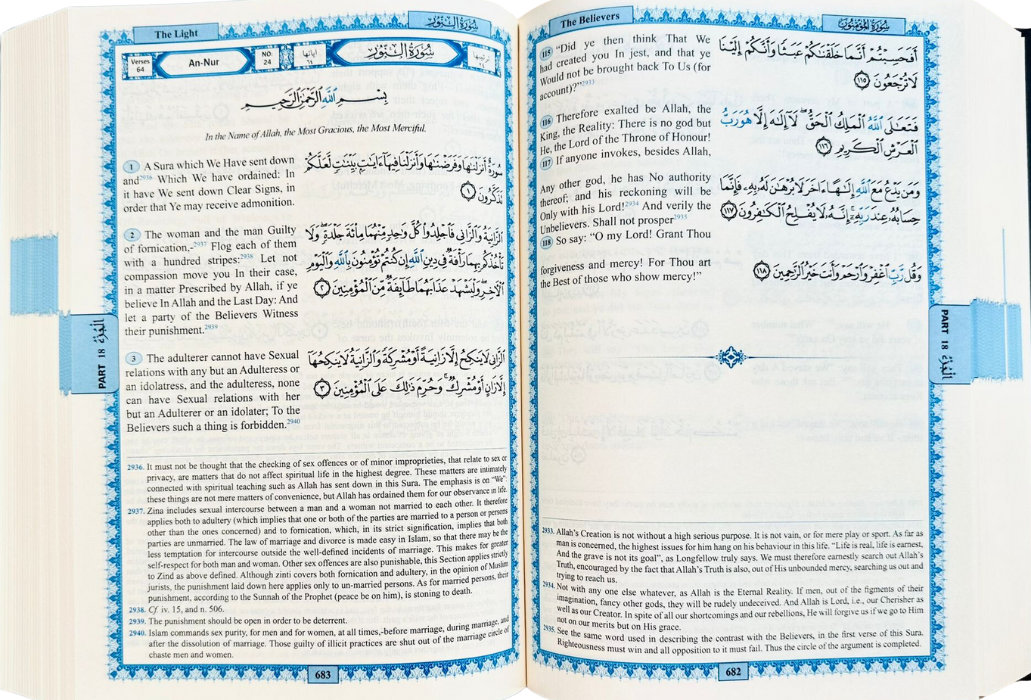 The Believers
سُورَةُ المُؤْمِنُون
115 "Did ye then think That We
had created you In jest, and that ye
Would not be brought back To Us (for
account)?"2933
أَفَحَسِبْتُمْ أَنَّمَا خَلَقْنَٰكُمْ عَبَثًا وَأَنَّكُمْ إِلَيْنَا
لَا تُرْجَعُونَ ١١٥
116 Therefore exalted be Allah, the
King, the Reality: There is no god but
He, the Lord of the Throne of Honour!
117 If anyone invokes, besides Allah,
فَتَعَٰلَى ٱللَّهُ ٱلْمَلِكُ ٱلْحَقُّ ۖ لَآ إِلَٰهَ إِلَّا هُوَ رَبُّ
ٱلْعَرْشِ ٱلْكَرِيمِ ١١٦
Any other god, he has No authority
thereof; and his reckoning will be
Only with his Lord!2934 And verily the
Unbelievers. Shall not prosper2935
118 So say: "O my Lord! Grant Thou
وَمَن يَدْعُ مَعَ ٱللَّهِ إِلَٰهًا ءَاخَرَ لَا بُرْهَٰنَ لَهُۥ بِهِۦ فَإِنَّمَا
حِسَابُهُۥ عِندَ رَبِّهِۦٓ ۚ إِنَّهُۥ لَا يُفْلِحُ ٱلْكَٰفِرُونَ ١١٧
forgiveness and mercy! For Thou art
the Best of those who show mercy!"
وَقُل رَّبِّ ٱغْفِرْ وَٱرْحَمْ وَأَنتَ خَيْرُ ٱلرَّٰحِمِينَ ١١٨
PART 18 الجزء
2933. Allah's Creation is not without a high serious purpose. It is not vain, or for mere play or sport. As far as
man is concerned, the highest issues for him hang on his behaviour in this life. "Life is real, life is earnest,
And the grave is not its goal", as Longfellow truly says. We must therefore earnestly search out Allah's
Truth, encouraged by the fact that Allah's Truth is also, out of His unbounded mercy, searching us out and
trying to reach us.
2934. Not with any one else whatever, as Allah is the Eternal Reality. If men, out of the figments of their
imagination, fancy other gods, they will be rudely undeceived. And Allah is Lord, i.e., our Cherisher as
well as our Creator. In spite of all our shortcomings and our rebellions, He will forgive us if we go to Him
not on our merits but on His grace.
2935. See the same word used in describing the contrast with the Believers, in the first verse of this Sura.
Righteousness must win and all opposition to it must fail. Thus the circle of the argument is completed.
682
The Light
سُورَةُ النُّور
Verses
64
An-Nur
NO.
24
آياتها
٦٤
سُورَةُ النُّورِ
ترتيبها
بِسْمِ ٱللَّهِ ٱلرَّحْمَٰنِ ٱلرَّحِيمِ
In the Name of Allah, the Most Gracious, the Most Merciful.
1 A Sura which We Have sent down
and2936 Which We have ordained: In
it have We sent down Clear Signs, in
order that Ye may receive admonition.
سُورَةٌ أَنزَلْنَٰهَا وَفَرَضْنَٰهَا وَأَنزَلْنَا فِيهَآ ءَايَٰتٍۭ بَيِّنَٰتٍ لَّعَلَّكُمْ
تَذَكَّرُونَ ١
2 The woman and the man Guilty
of fornication,-2937 Flog each of them
with a hundred stripes:2938 Let not
compassion move you In their case,
in a matter Prescribed by Allah, if ye
believe In Allah and the Last Day: And
let a party of the Believers Witness
their punishment.2939
ٱلزَّانِيَةُ وَٱلزَّانِى فَٱجْلِدُوا۟ كُلَّ وَٰحِدٍ مِّنْهُمَا مِا۟ئَةَ جَلْدَةٍ ۖ وَلَا
تَأْخُذْكُم بِهِمَا رَأْفَةٌ فِى دِينِ ٱللَّهِ إِن كُنتُمْ تُؤْمِنُونَ بِٱللَّهِ وَٱلْيَوْمِ
ٱلْءَاخِرِ ۖ وَلْيَشْهَدْ عَذَابَهُمَا طَآئِفَةٌ مِّنَ ٱلْمُؤْمِنِينَ ٢
3 The adulterer cannot have Sexual
relations with any but an Adulteress or
an idolatress, and the adulteress, none
can have Sexual relations with her
but an Adulterer or an idolater; To the
Believers such a thing is forbidden.2940
ٱلزَّانِى لَا يَنكِحُ إِلَّا زَانِيَةً أَوْ مُشْرِكَةً وَٱلزَّانِيَةُ لَا يَنكِحُهَآ
إِلَّا زَانٍ أَوْ مُشْرِكٌ ۚ وَحُرِّمَ ذَٰلِكَ عَلَى ٱلْمُؤْمِنِينَ ٣
PART 18 الجزء
2936. It must not be thought that the checking of sex offences or of minor improprieties, that relate to sex or
privacy, are matters that do not affect spiritual life in the highest degree. These matters are intimately
connected with spiritual teaching such as Allah has sent down in this Sura. The emphasis is on "We":
these things are not mere matters of convenience, but Allah has ordained them for our observance in life.
2937. Zina includes sexual intercourse between a man and a woman not married to each other. It therefore
applies both to adultery (which implies that one or both of the parties are married to a person or persons
other than the ones concerned) and to fornication, which, in its strict signification, implies that both
parties are unmarried. The law of marriage and divorce is made easy in Islam, so that there may be the
less temptation for intercourse outside the well-defined incidents of marriage. This makes for greater
self-respect for both man and woman. Other sex offences are also punishable, this Section applies strictly
to Zind as above defined. Although zinti covers both fornication and adultery, in the opinion of Muslim
jurists, the punishment laid down here applies only to un-married persons. As for married persons, their
punishment, according to the Sunnah of the Prophet (peace be on him), is stoning to death.
2938. Cf. iv. 15, and n. 506.
2939. The punishment should be open in order to be deterrent.
2940. Islam commands sex purity, for men and for women, at all times,-before marriage, during marriage, and
after the dissolution of marriage. Those guilty of illicit practices are shut out of the marriage circle of
chaste men and women.
683